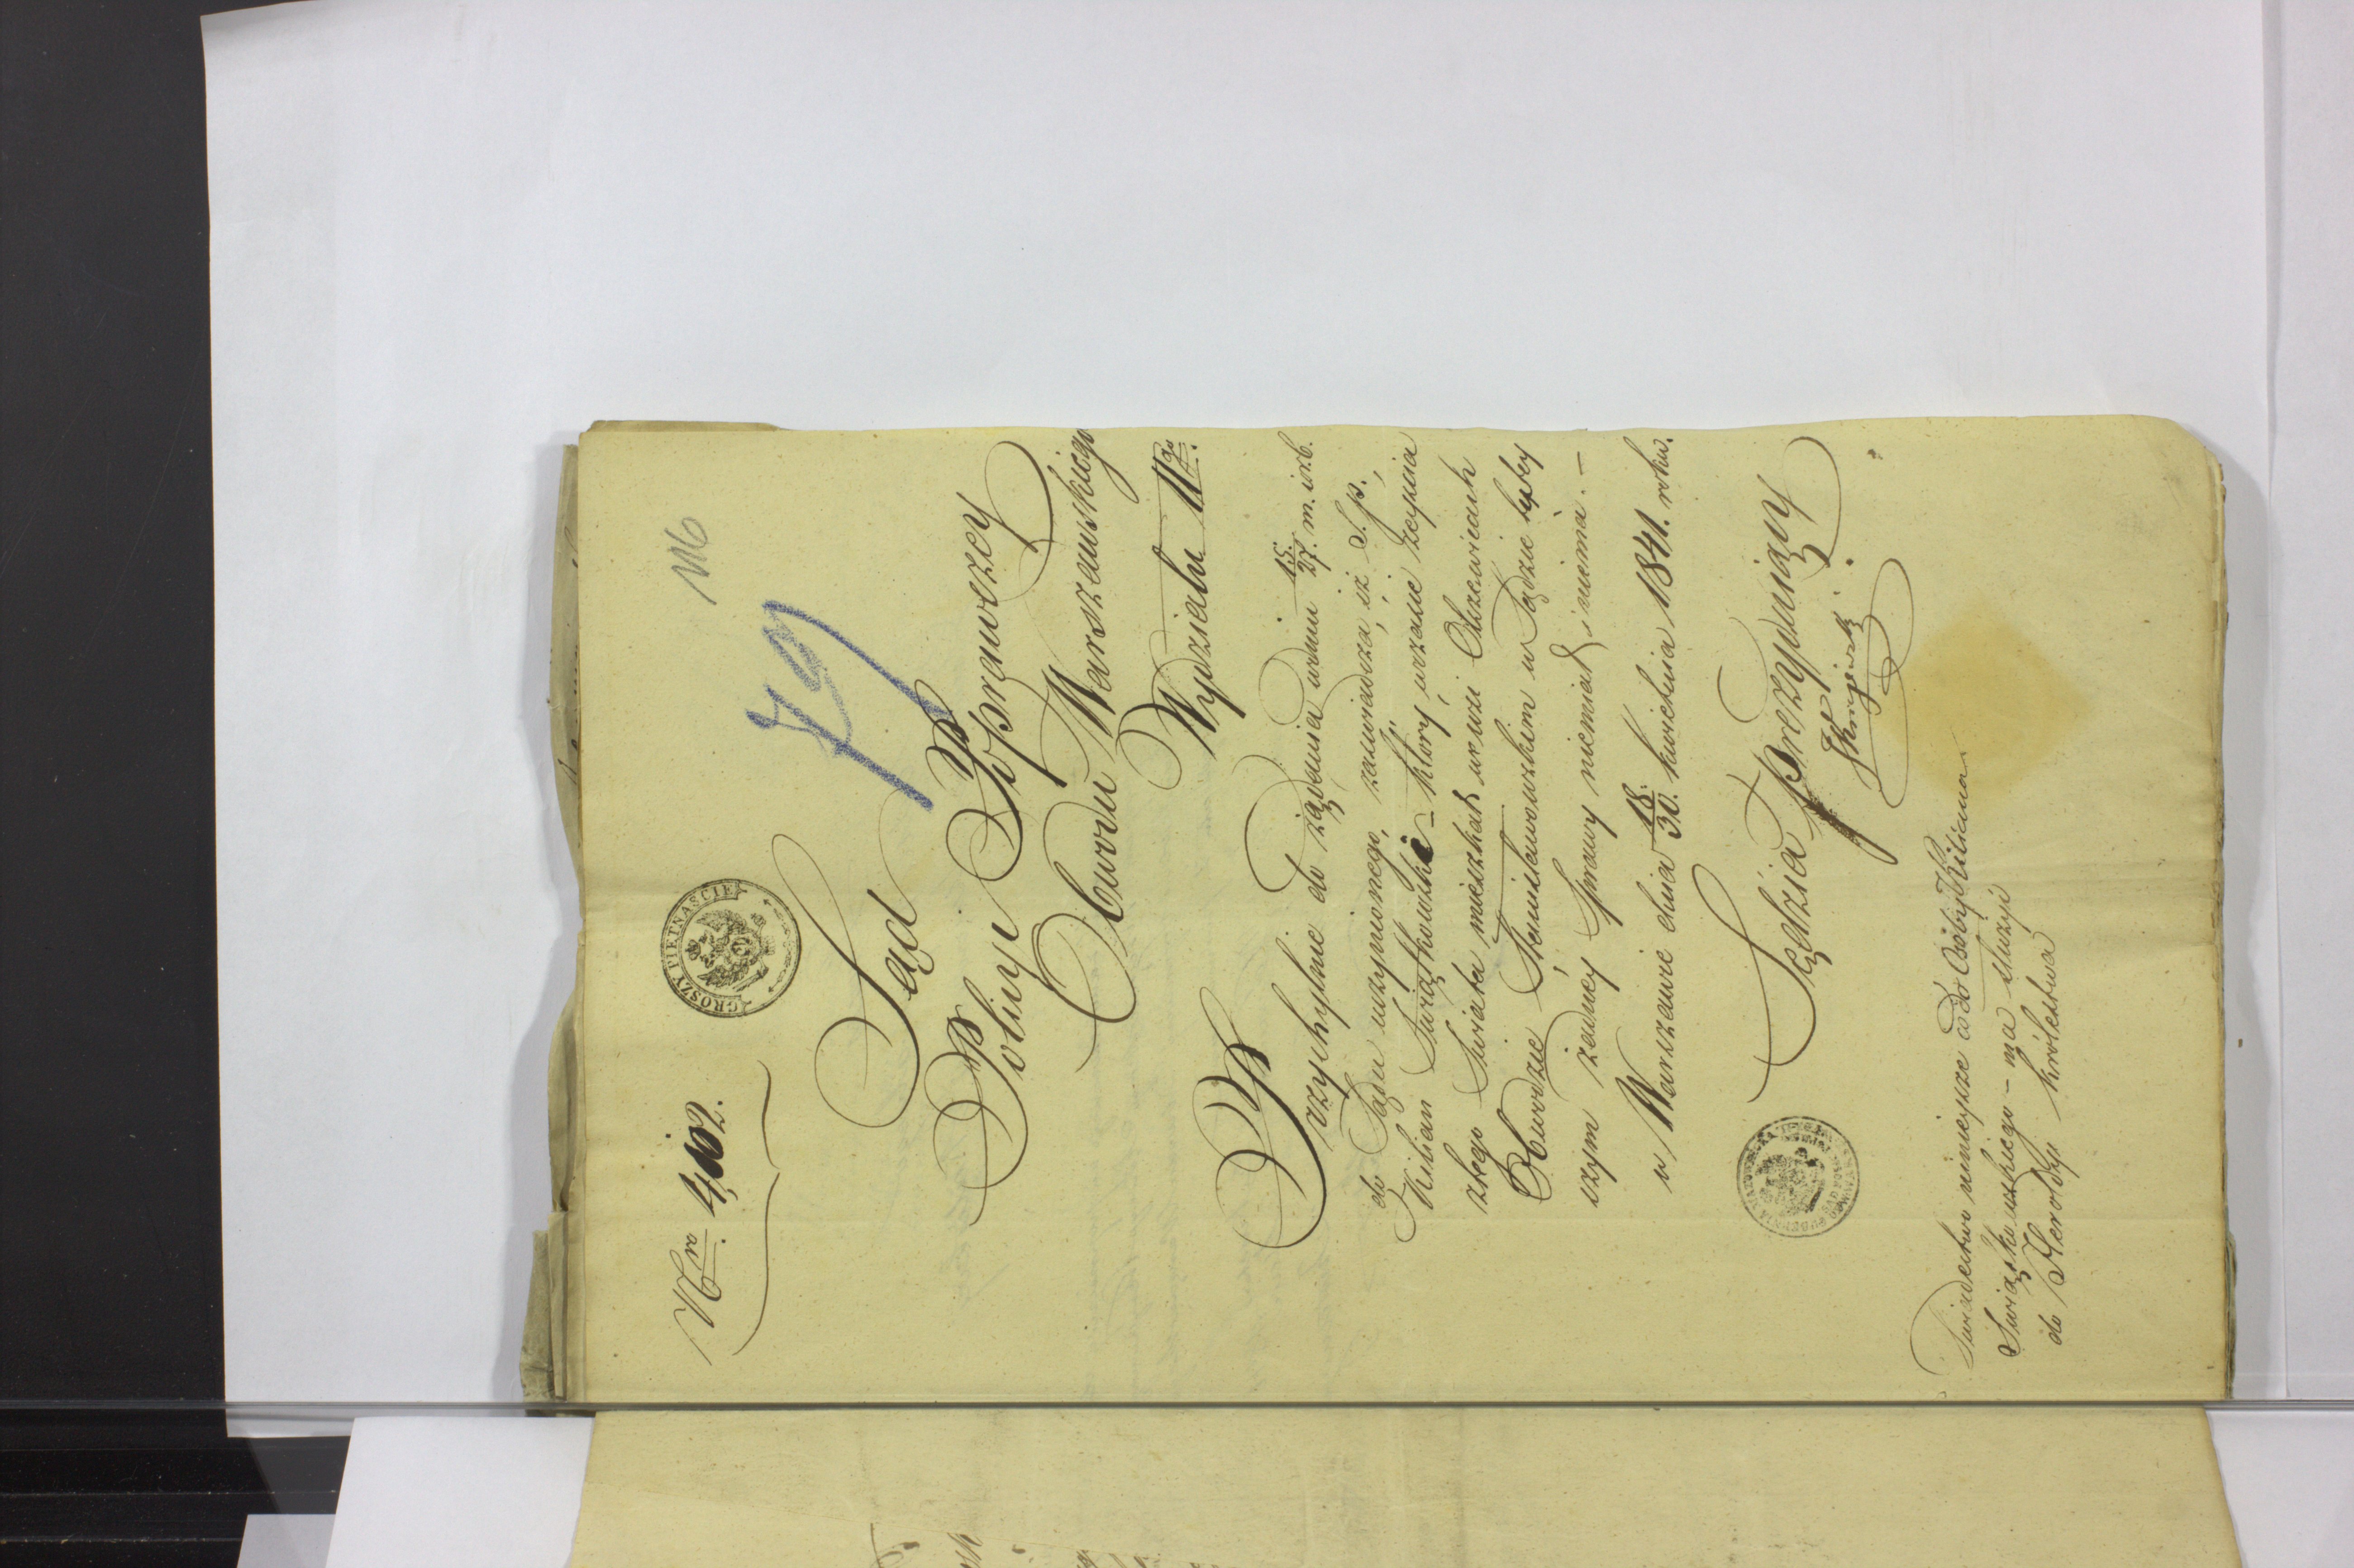 116
Nro 4,102.
GROSZY PIETNAŚCIE
79
Sąd
Policyi Poprawczey
Obwodu Warszawskiego
Wydziału IIgo
Przychylnie do żądania w dniu 15/27. m. i r. b.
do Sądu uczynionego, zaświadcza, iż S. p.
Kilian Swiątkowski – który, w czasie zeyscia
z tego Swiata mieszkał we wsi
Obwodzie Stanisławowskim w Sądzie tutey
szym żadney Sprawy niemiał i niema. –
w Warszawie dnia 18/30. kwietnia 1841. roku.
Sędzia Prezyduiący
Swiadectwo ninieysze co do Osoby Kiliana
Swiątkowskiego – ma służyć
do Heroldyi królestwa